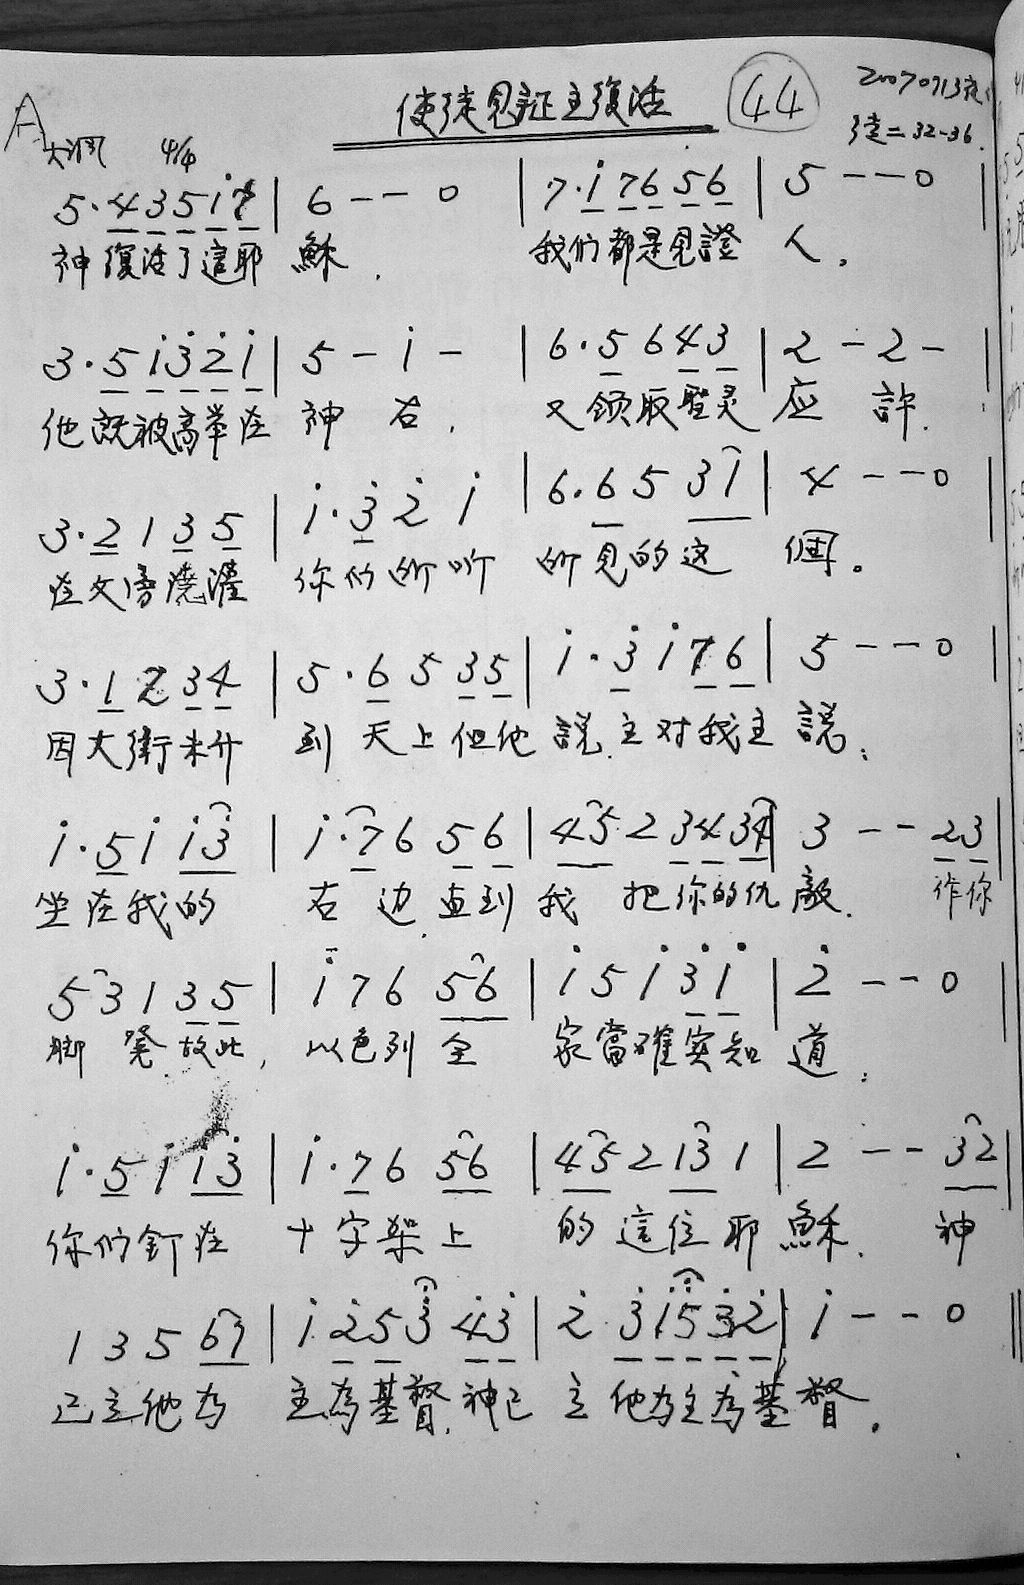 使徒見証主復活 44 20070913夜
A大调 4/4 徒二32-36.
5·43517 | 6--0 | 7·i7656 | 5--0
神復活了這耶 穌. 我们都是見證 人.
3·5i321 | 5-i- | 6·5643 | 2-2- |
他既被高举在 神右. 又领取聖灵 应許.
3·2135 | i·32i | 6·6531 | 4--0 |
澆灌 你们所听 所見的这 個。
3·1234 | 5·6535 | i·3i76 | 5--0 |
因大衛未升 到天上但他 說.主对我主 說:
i·5ii3 | i·7656 | 4523434 | 3--23
坐在我的 右边.直到 我把你的仇 敵. 作你
53135 | i7656 | i5i3i | 2--0 |
脚凳故此, 以色列全 家當確实知 道:
i·5ii3 | i·7656 | 452131 | 2--32 |
你们釘在 十字架上 的這位耶 穌. 神
13567 | i25343 | 231532 | i--0 ‖
已立他为 主為基督.神已 立他为主為基督.